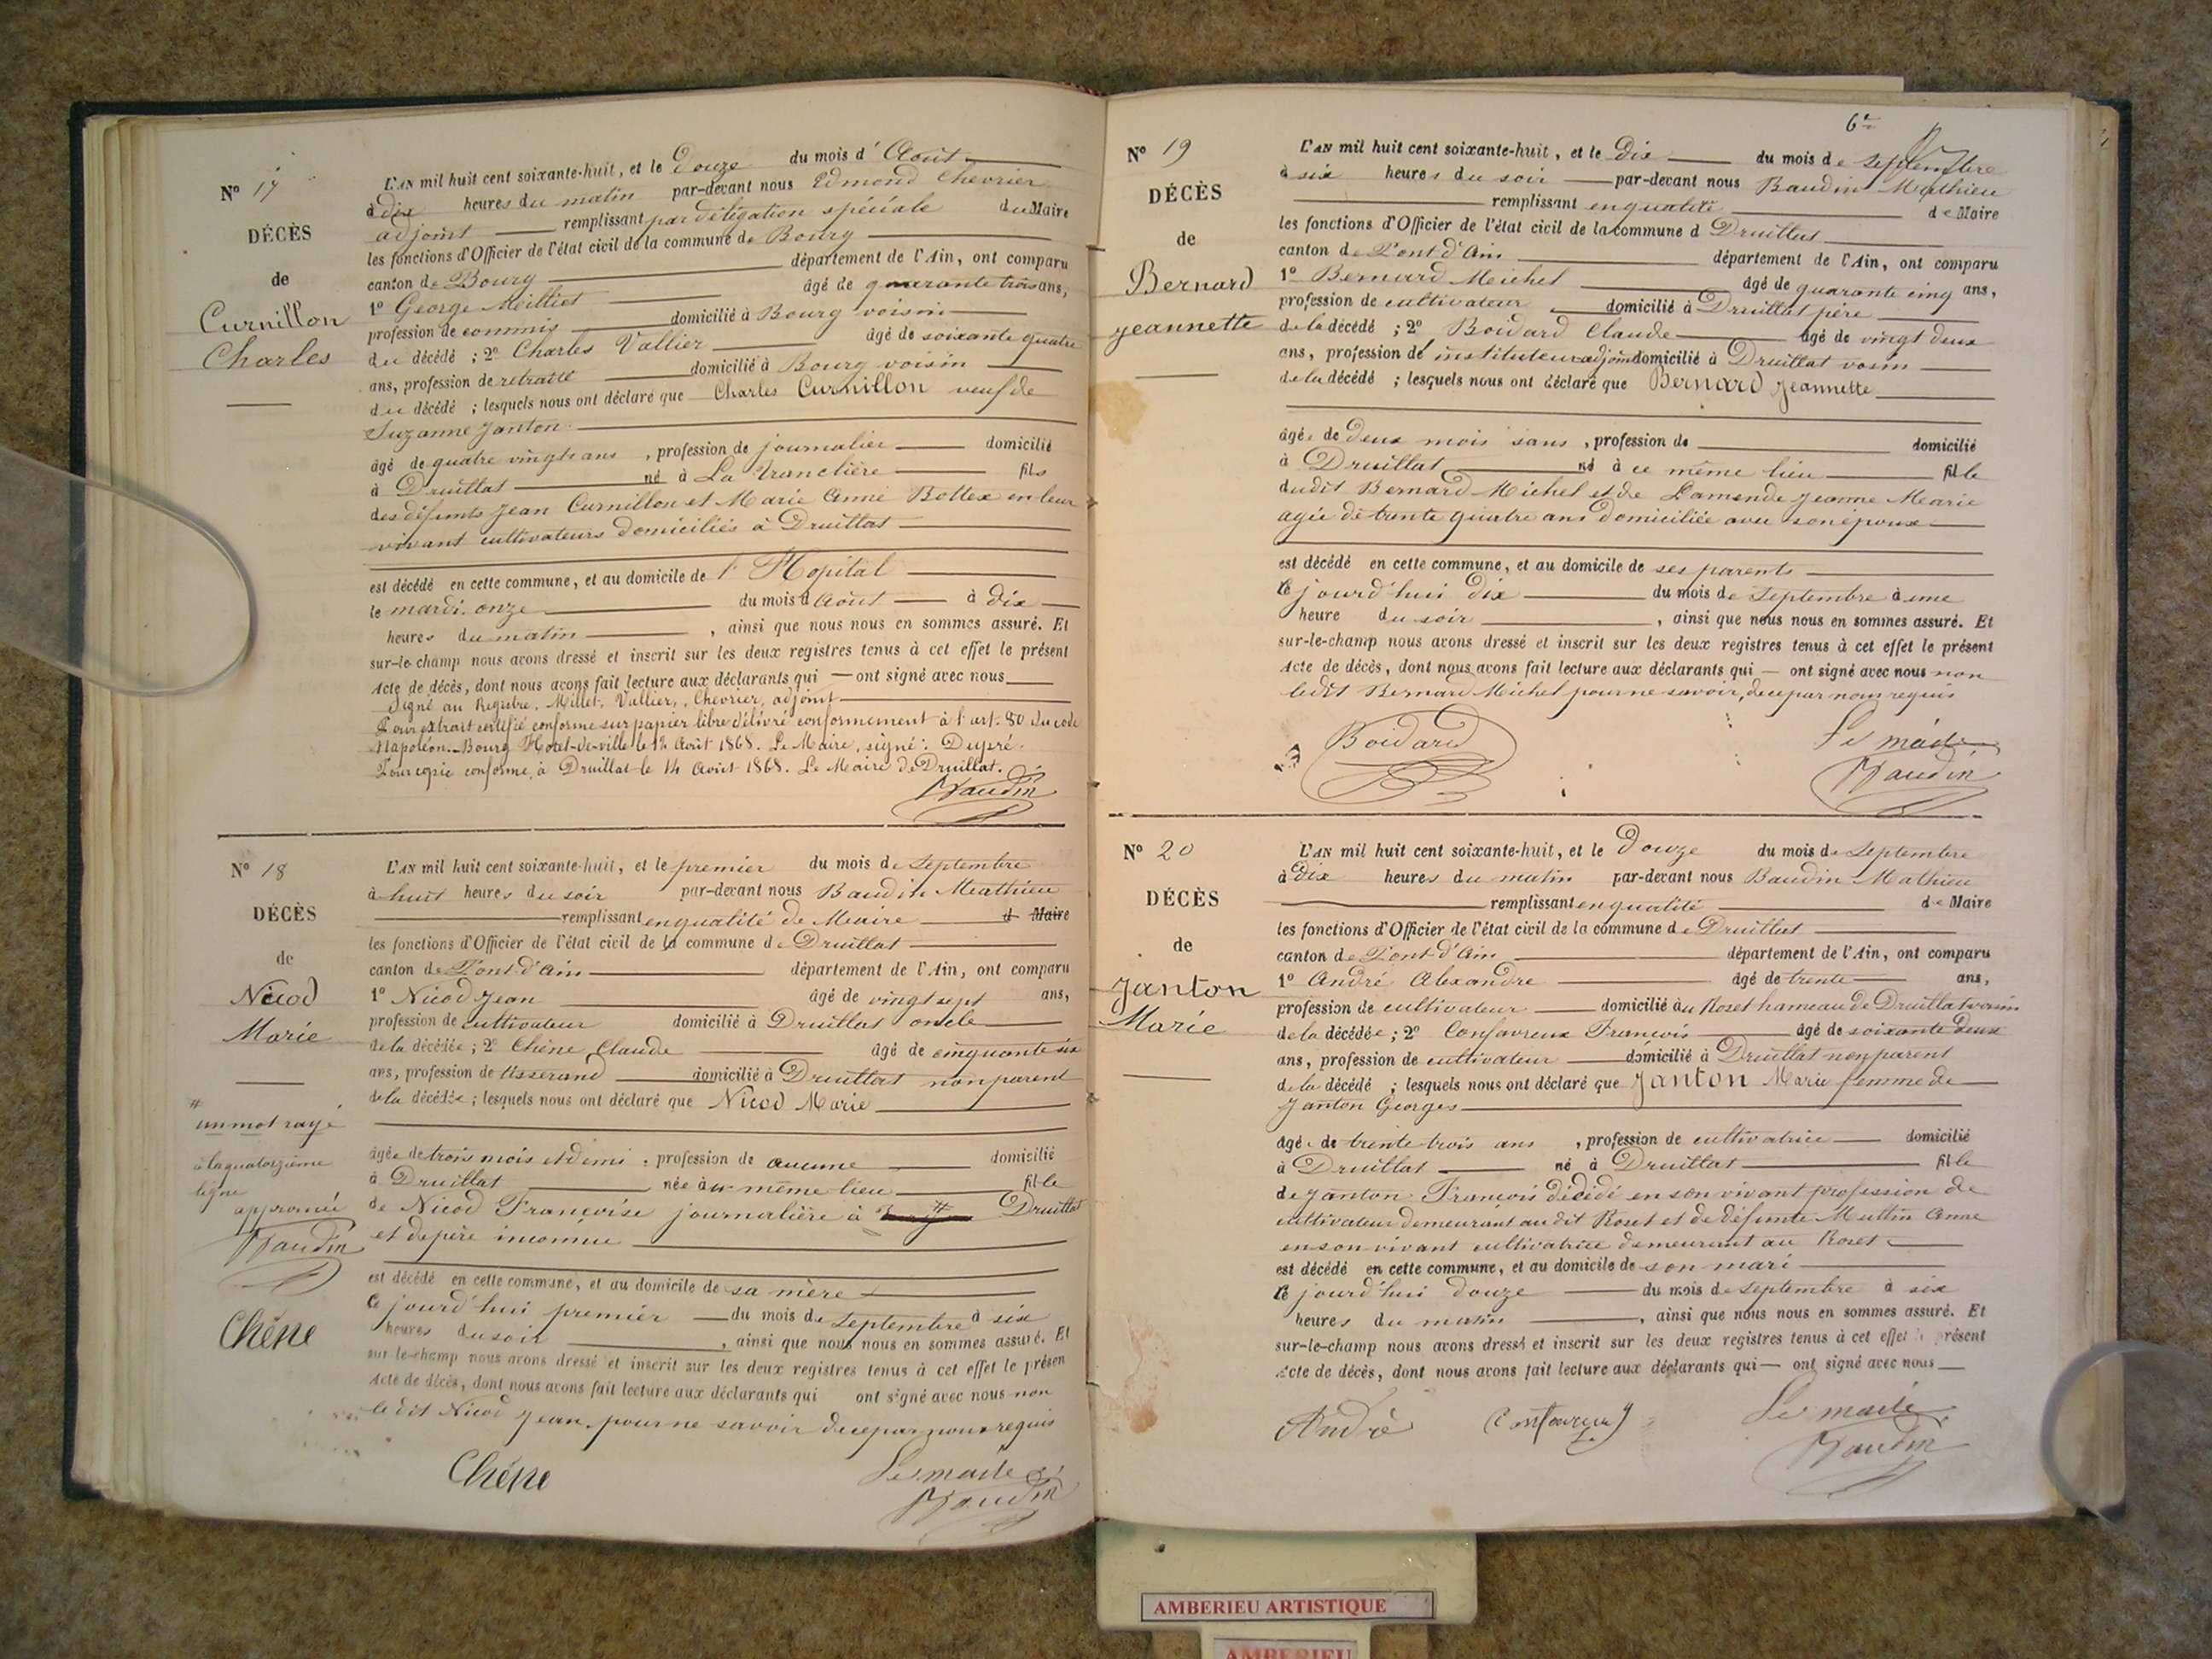 N° 17
DÉCÈS
de
Curnillon
Charles
L'AN mil huit cent soixante-huit, et le Douze du mois d'Août
à dix heures du matin par-devant nous Edmond Chevrier
adjoint remplissant par délégation spéciale du Maire
les fonctions d'Officier de l'état civil de la commune de Bourg
canton de Bourg département de l'Ain, ont comparu
1° George Meilliet âgé de quarante trois ans,
profession de commis domicilié à Bourg voisin
du décédé ; 2° Charles Vallier âgé de soixante quatre
ans, profession de retraité domicilié à Bourg voisin
du décédé ; lesquels nous ont déclaré que Charles Curnillon veuf de
Suzanne Janton
âgé de quatre vingts ans , profession de journalier domicilié
à Druillat né à La Tranclière fils
des défunts Jean Curnillon et Marie Anne Bottex en leur
vivant cultivateurs domiciliés à Druillat
est décédé en cette commune, et au domicile de l'Hopital
le mardi onze du mois d Août à dix
heures du matin , ainsi que nous nous en sommes assuré. Et
sur-le-champ nous avons dressé et inscrit sur les deux registres tenus à cet effet le présent
Acte de décès, dont nous avons fait lecture aux déclarants qui — ont signé avec nous
Signé au Registre, Millet, Vallier, Chevrier, adjoint
Pour extrait certifié conforme sur papier libre délivré conformément à l'art. 80 du code
Napoléon. Bourg Hotel-de-ville le 12 Août 1868. Le Maire, signé: Dupré.
Pour copie conforme, à Druillat le 14 Août 1868. Le Maire de Druillat.
Baudin
N° 18
DÉCÈS
de
Nicod
Marie
#
un mot rayé
à la quatorzième
ligne
approuvé
Baudin
Chêne
L'AN mil huit cent soixante-huit, et le premier du mois de Septembre
à huit heures du soir par-devant nous Baudin Mathieu
remplissant en qualité de Maire d Maire
les fonctions d'Officier de l'état civil de la commune de Druillat
canton de Pont-d'Ain département de l'Ain, ont comparu
1° Nicod Jean âgé de vingt sept ans,
profession de cultivateur domicilié à Druillat oncle
de la décédée ; 2° Chêne Claude âgé de cinquante six
ans, profession de tisserand domicilié à Druillat non parent
de la décédée ; lesquels nous ont déclaré que Nicod Marie
âgée de trois mois et demi , profession de aucune domicilié
à Druillat née à ce même lieu fille
de Nicod Françoise journalière à # Druillat
et de père inconnu
est décédé en cette commune, et au domicile de sa mère
ce jourd'hui premier du mois de Septembre à six
heures du soir , ainsi que nous nous en sommes assuré. Et
sur-le-champ nous avons dressé et inscrit sur les deux registres tenus à cet effet le présen
Acte de décès, dont nous avons fait lecture aux déclarants qui ont signé avec nous non
le dit Nicod Jean pour ne savoir de ce par nous requis
Chêne
Le maire
Baudin
6e
N° 19
DÉCÈS
de
Bernard
Jeannette
L'AN mil huit cent soixante-huit, et le Dix du mois de Septembre
à six heures du soir par-devant nous Baudin Mathieu
remplissant en qualité de Maire
les fonctions d'Officier de l'état civil de la commune d Druillat
canton de Pont-d'Ain département de l'Ain, ont comparu
1° Bernard Michel âgé de quarante cinq ans,
profession de cultivateur domicilié à Druillat père
de la décédé ; 2° Boidard Claude âgé de vingt deux
ans, profession de instituteur adjoint domicilié à Druillat voisin
de la décédé ; lesquels nous ont déclaré que Bernard Jeannette
âgée de Deux mois sans , profession de domicilié
à Druillat né à ce même lieu fille
dudit Bernard Michel et de Lamende Jeanne Marie
agée de trente quatre ans domiciliée avec son époux
est décédé en cette commune, et au domicile de ses parents
ce jourd'hui dix du mois de Septembre à une
heure du soir , ainsi que nous nous en sommes assuré. Et
sur-le-champ nous avons dressé et inscrit sur les deux registres tenus à cet effet le présent
Acte de décès, dont nous avons fait lecture aux déclarants qui — ont signé avec nous non
ledit Bernard Michel pour ne savoir, de ce par nous requis
Boidard
Le maire
Baudin
N° 20
DÉCÈS
de
Janton
Marie
L'AN mil huit cent soixante-huit, et le Douze du mois de Septembre
à Dix heures du matin par-devant nous Baudin Mathieu
remplissant en qualité de Maire
les fonctions d'Officier de l'état civil de la commune de Druillat
canton de Pont-d'Ain département de l'Ain, ont comparu
1° André Alexandre âgé de trente ans,
profession de cultivateur domicilié au Roset hameau de Druillat voisin
de la décédée ; 2° Confavreux François âgé de soixante deux
ans, profession de cultivateur domicilié à Druillat non parent
de la décédé ; lesquels nous ont déclaré que Janton Marie femme de
Janton Georges
âgé de trente trois ans , profession de cultivatrice domicilié
à Druillat né à Druillat fille
de Janton François décédé en son vivant profession de
cultivateur demeurant au dit Roset et de défunte Muttin Anne
en son vivant cultivatrice demeurant au Roset
est décédé en cette commune, et au domicile de son mari
ce jourd'hui douze du mois de Septembre à six
heures du matin , ainsi que nous nous en sommes assuré. Et
sur-le-champ nous avons dressé et inscrit sur les deux registres tenus à cet effet présent
Acte de décès, dont nous avons fait lecture aux déclarants qui — ont signé avec nous
André
Confavreux
Le maire
Baudin
AMBERIEU ARTISTIQUE
AMBERIEU